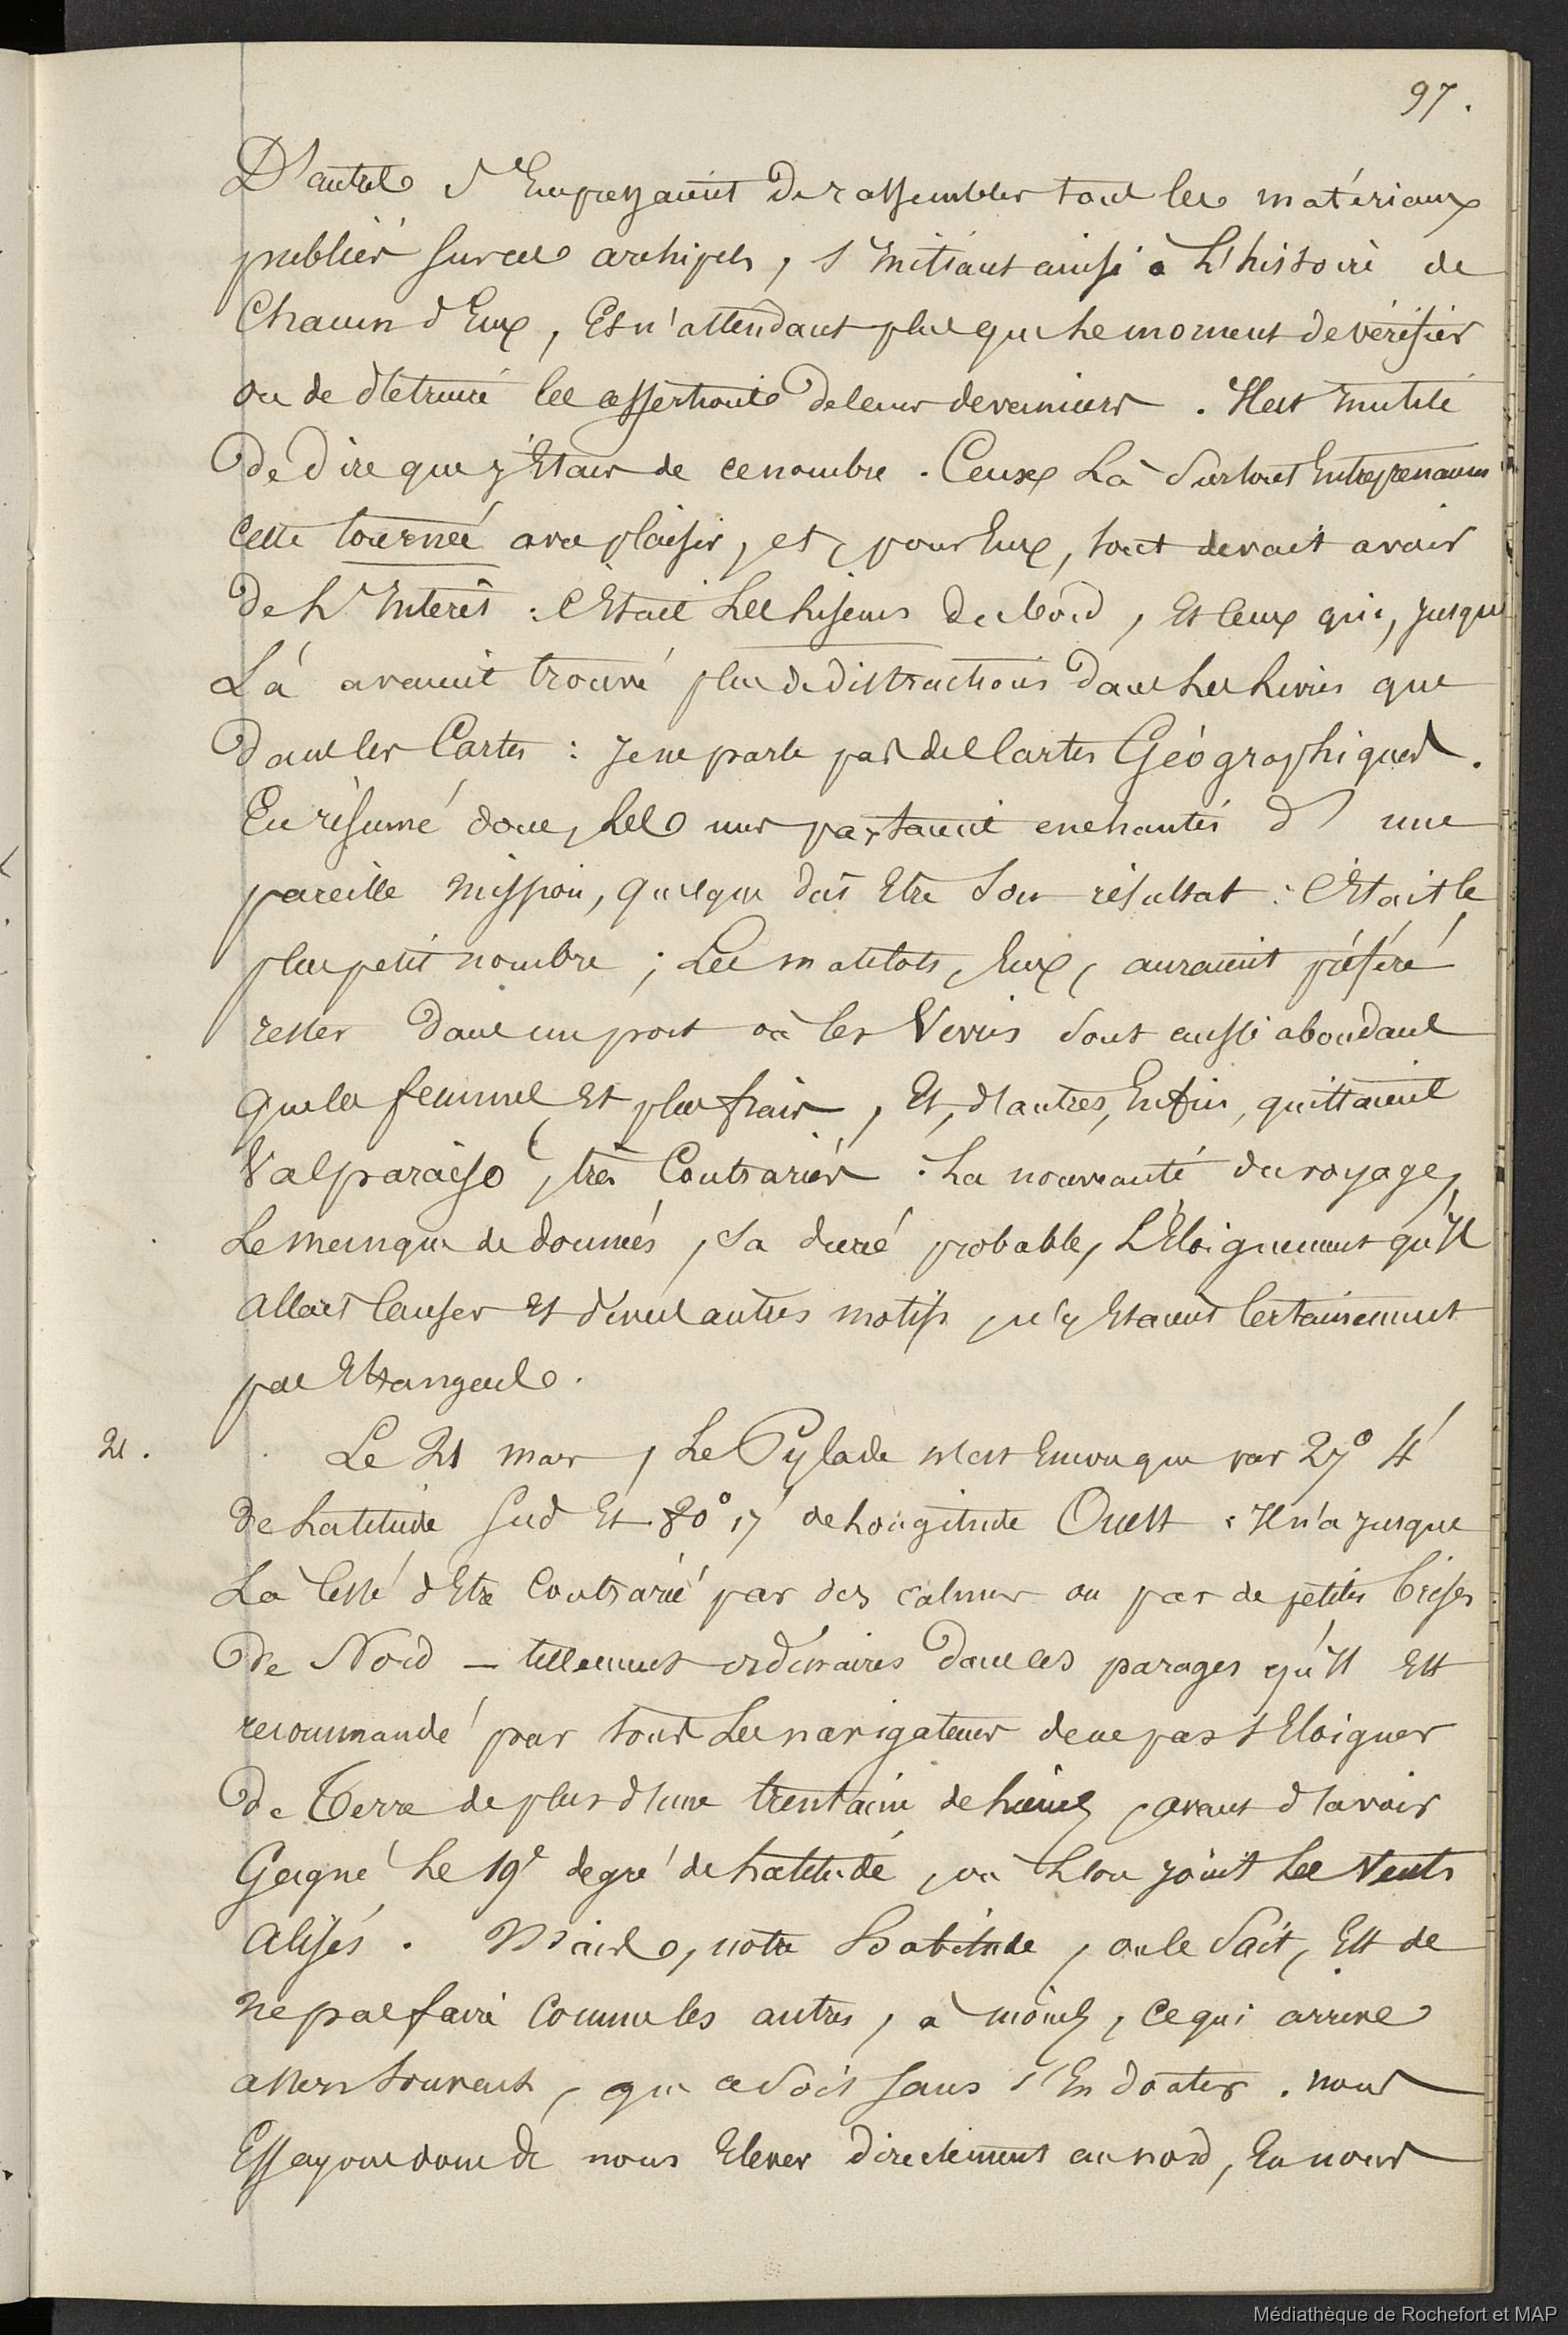 97.
D'autres s'Empressaient De rassembler tous les matériaux
publiés sur ces archipels, s'initiant ainsi à L'histoire de
Chacun d'Eux, Et n'attendant plus que Le moment de vérifier
ou de détruire les assertions de leurs devanciers. Il est Inutile
De Dire que j'Etais de ce nombre. Ceux Là Surtout Entreprenaient
cette tournée avec plaisir, et, pour Eux, tout devait avoir
De L'Intérêt : c'Etait Les liseurs du bord, Et Ceux qui, jusque
Là avaient trouvé plus de distractions Dans Les Livres que
Dans les Cartes : je ne parle pas des Cartes Géographiques.
En résumé donc, Les uns partaient enchantés d'une
pareille mission, quelque dut Etre Son résultat : c'Etait le
plus petit nombre ; Les matelots, Eux, auraient préféré
rester Dans un port où les Vivres Sont aussi abondans
que les femmes Et plus frais, Et, d'autres, Enfin, quittaient
Valparaiso, très Contrariés. La nouveauté du voyage,
Le manque de données, Sa durée probable, L'Eloignement qu'Il
allait Causer Et divers autres motifs, n'y Etaient Certainement
pas Etrangers.
21.
Le 21 mars, Le Pylade n'est Encore que par 27° 4'
de Latitude Sud Et 80° 17' de Longitude Ouest. Il n'a jusque
Là Cessé d'Etre Contrarié par des calmes ou par de petites brises
De Nord — tellement ordinaires Dans ces parages qu'Il Est
recommandé par tous Les navigateurs de ne pas s'Eloigner
De Terre de plus d'une trentaine de Lieues, avant d'avoir
Gagné Le 19e degré de Latitude, où L'on joint Les Vents
alisés. Mais, notre Habitude, on le Sait, Est de
ne pas faire Comme les autres, à moins, ce qui arrive
assez Souvent, que ce Soit Sans s'En douter. Nous
Essayons donc de nous Elever directement au nord, En nous